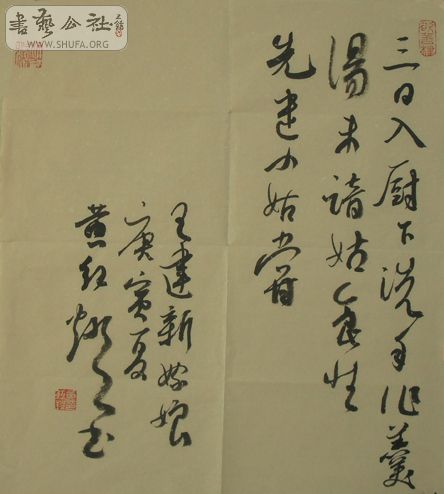 書藝公社
WWW.SHUFA.ORG
三日入厨下洗手作羹
湯未諳姑食性
先遣小姑嘗
王建新嫁娘
庚寅夏
黄红 书